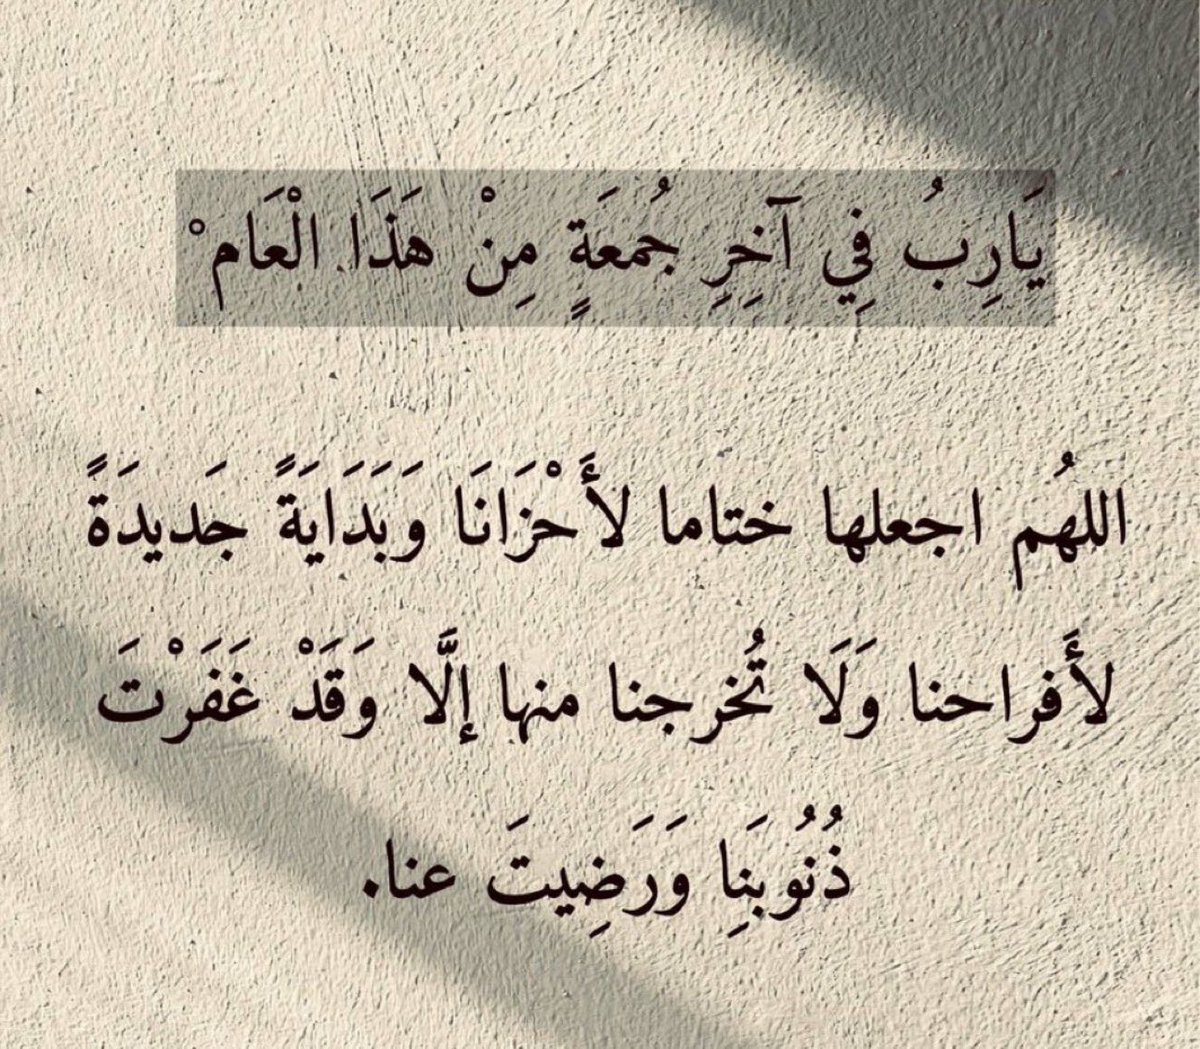 يَارِبُ فِي آخِرِ جُمعَةٍ مِنْ هَذَا الْعَام ْ
اللهُم اجعلها ختاما لأَحْزَانَا وَبَدَايَةً جَديدَةً
لأَفراحنا وَلَا تُخرجنا منها إلَّا وَقَدْ غَفَرْتَ
ذُنُوبَنِا وَرَضِيتَ عنا.